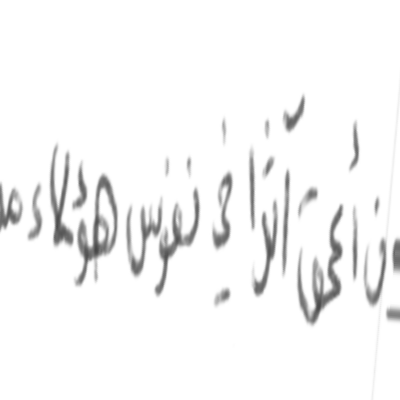 أعمق آثارا في نفوس هؤلاء